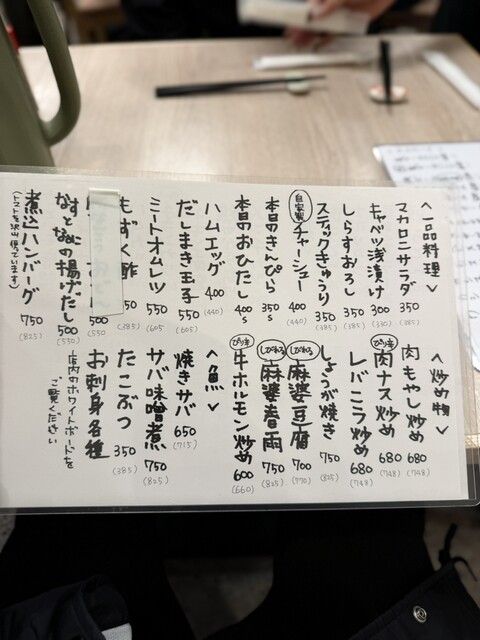 <一品料理>
マカロニサラダ 350
キャベツ浅漬け 300 (330)
しらすおろし 350 (385)
スティックきゅうり 350 (385)
自家製 チャーシュー 400 (440)
本日のきんぴら 350 s
本日のおひたし 400 s
ハムエッグ 400 (440)
だしまき玉子 550 (605)
ミートオムレツ 550 (605)
もずく酢 (385)
550 (550)
なすとなにの揚げだし 500 (550)
煮込ハンバーグ 750 (825)
(トマトを沢山使っています)
<炒め物>
肉もやし炒め 680 (748)
ピリ辛 肉ナス炒め 680 (748)
レバニラ炒め 680 (748)
しょうが焼き 750 (825)
しびれる 麻婆豆腐 700 (770)
しびれる 麻婆春雨 750 (825)
ピリ辛 牛ホルモン炒め 600 (660)
<魚>
焼きサバ 650 (715)
サバ味噌煮 750 (825)
たこぶつ 350 (385)
お刺身各種
店内のホワイトボードを
ご覧ください